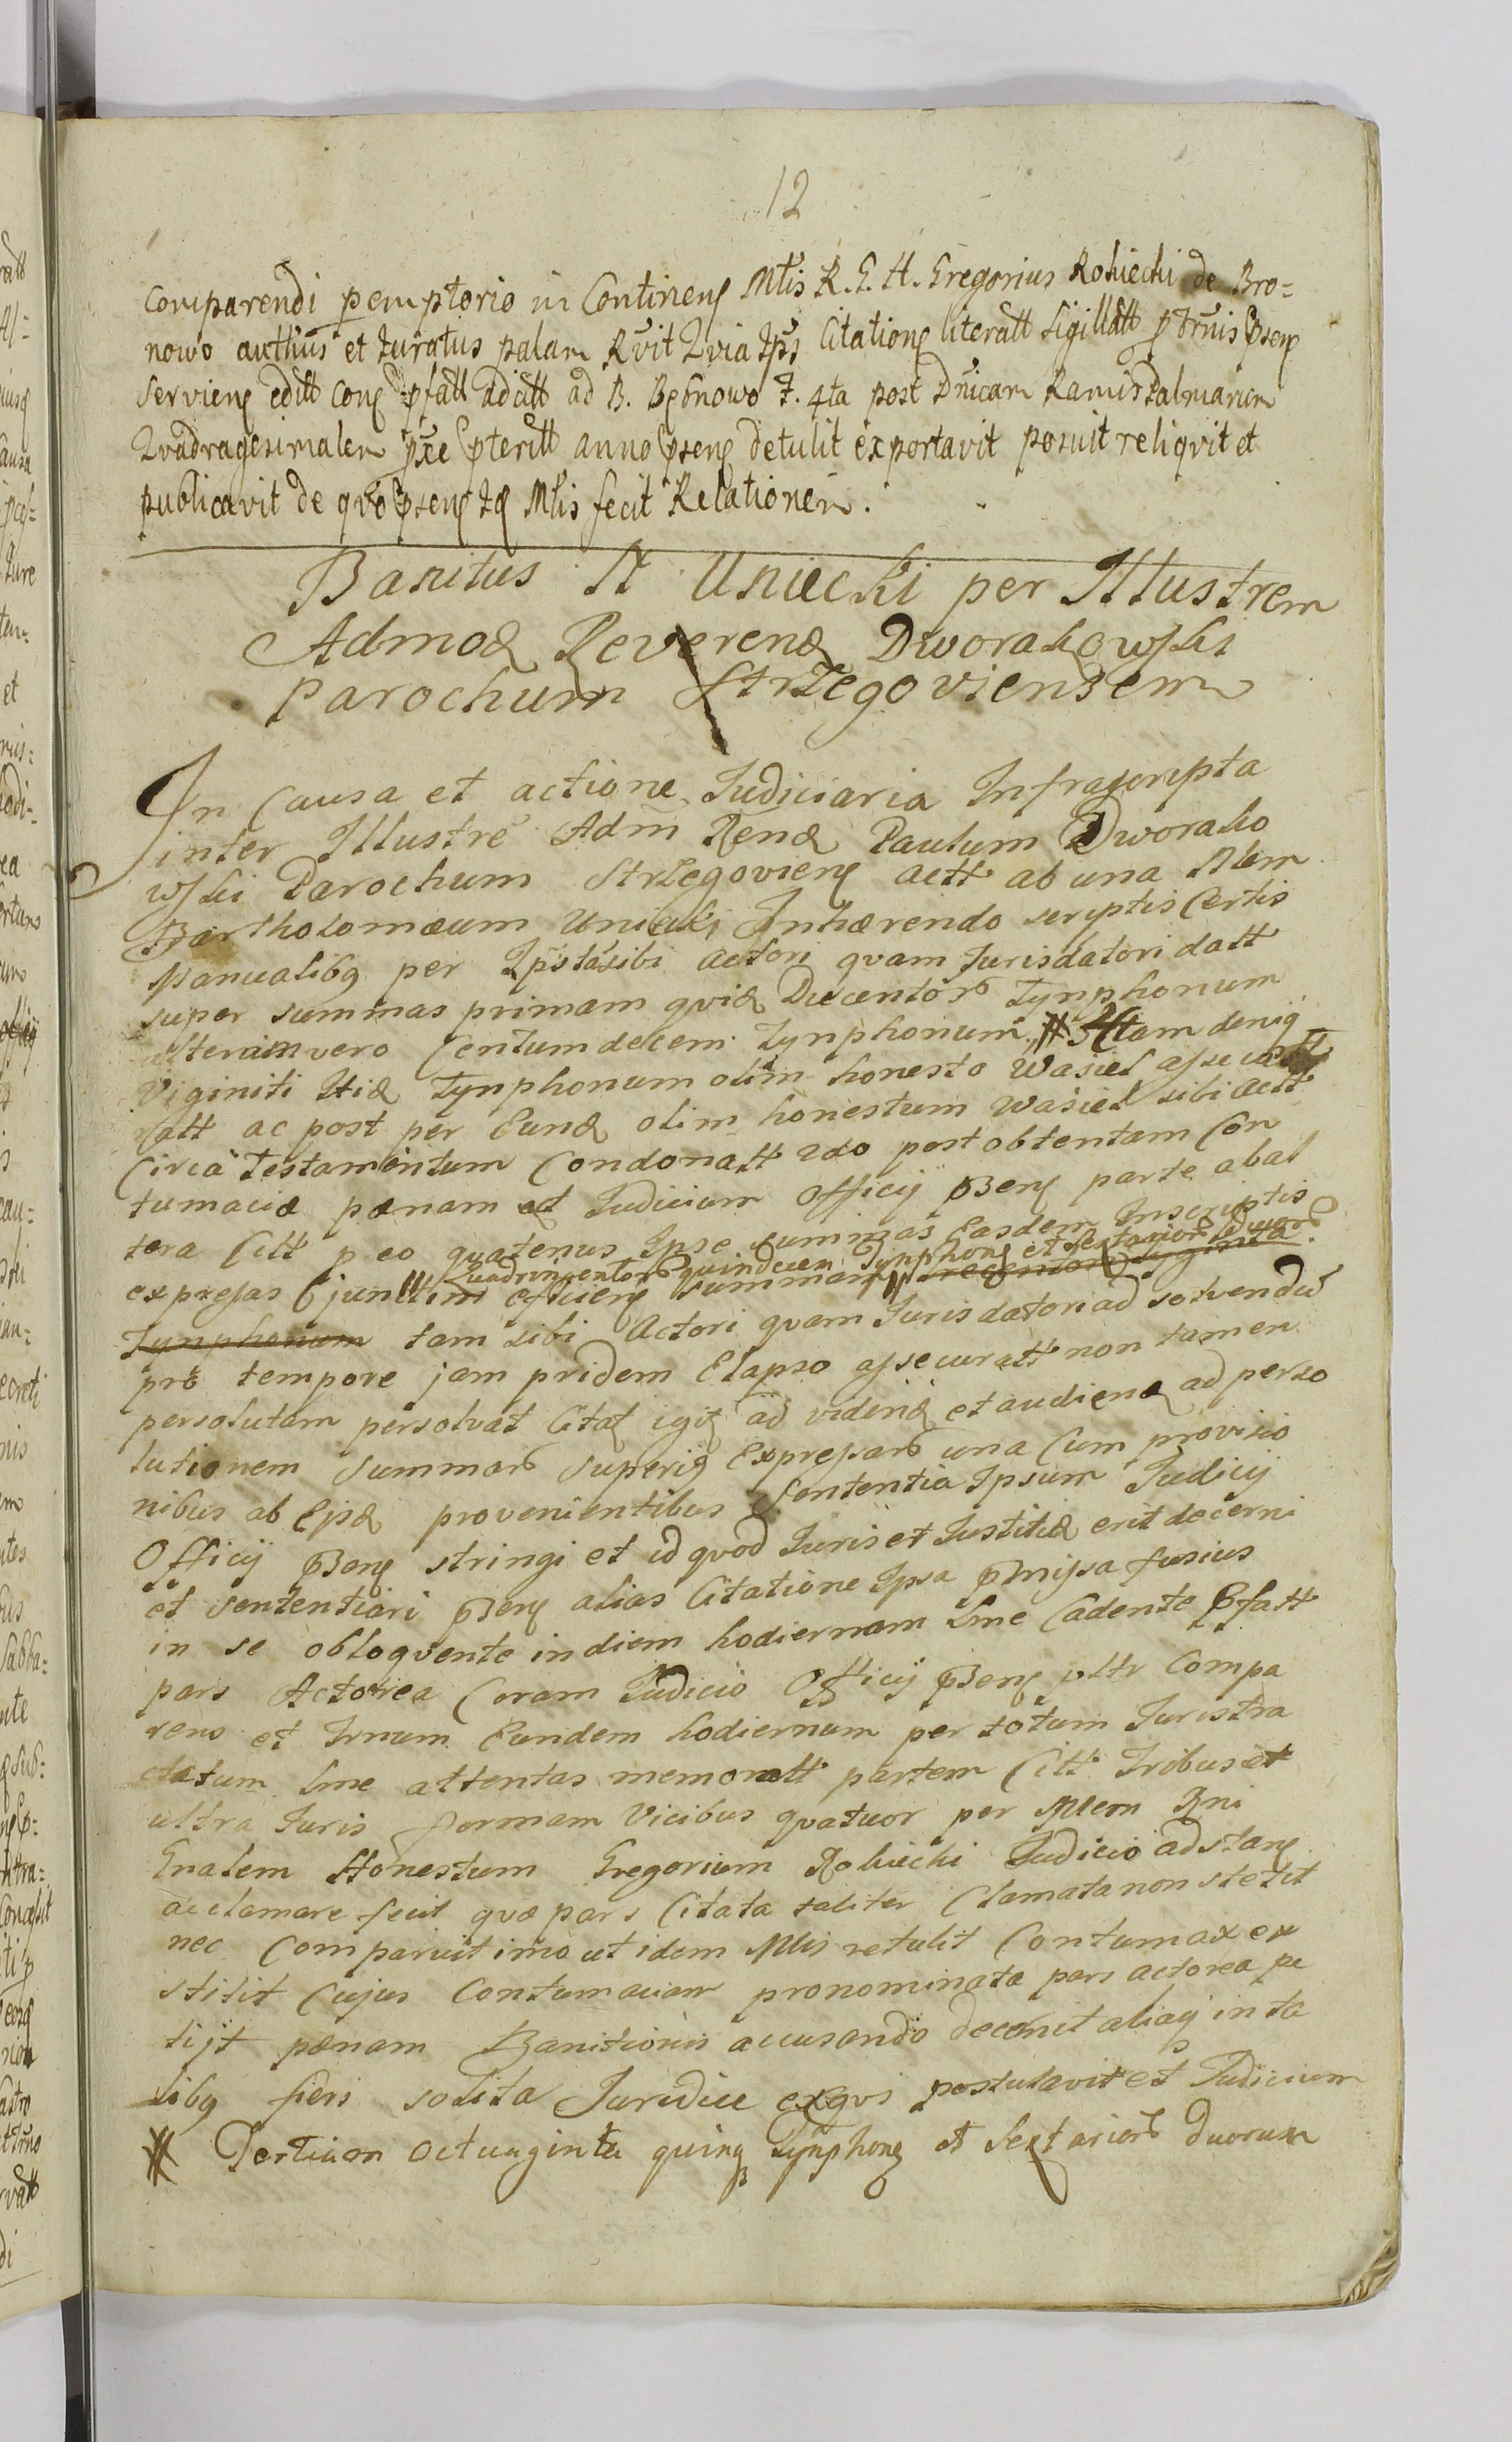 12
comparendi pemptorio in Contineng Mtis R. G. H. Gregorius Rokiecki de Bro=
nowo authūs et Juratus palam Rvit Qvia Ips Citationg literatt Sigillatt p
servieng editt cong pfatt ad citt ad B. F. 4ta post Dnicam Ramis Palmarum
Qvadragesimalem pxe pteritt anno pseng detulit exportavit posuit reliqvit et
publicavit de qvo pseng Mtis fecit Relationem.
Banitus N Uniecki per Illustrem
Admod Reverend Dworakowski
Parochum Strzegoviensem
In Causa et actione Judiciaria Infrascripta
inter Illustrē Adm̄ Rend Paulum Dworako
wski Parochum Strzegovieng actt ab una Nlem
Bartholomæum Uniecki Inhærendo scriptis Certis
Manualibq per Ipstasibi actori qvam Jurisdatori datt
super summas primam qvid Ducentor Tynphonum
alteram vero Centum decem Tynphonum # 3tiam deniq
Viginiti Itid Tynphonum olim honesto Wasiel assecu
ratt ac post per Eund olim honestum Wasiel sibi actt
Circa Testamentum Condonatt 2do post obtentam Con
tumacia pænam ad Judicium Officij pseng parte ab al
tera Citt p eo qvatenus Ipse summas Easdem Inscriptis
Quadringentor quindecem Tynphong et Sextarior duor
expressas Cjunctim efficieng summam
Tynphonum tam sibi Actori qvam Jurisdatori ad solvendū
pro tempore jam pridem Elapso assecuratt non tamen
persolutam persolvat Citat igit ad videnđ et audiend ad perso
lutionem Summaro Superiq Expressaro una Cum provisio
nibus ab Eisd provenientibus Sententia Ipsum Judicij
Officij pseng stringi et id qvod Juris et Justitia erit decerni
et sententiari pseng alias Citatione Ipsa pmissa fusius
in se obloqvente in diem hodiernam Lme Cadente pfatt
pars Actorea Coram Judicio Officij pseng pltr Compa
rens et Trnum Eundem hodiernum per totum Juris tra
ctatum Lme attentas memoratt partem Citt Tribus et
ultra Juris formam Vicibus qvatuor per Mlem Rni
Gnalem Honestum Gregorium Rokiecki Judicio adstang
acclamare fecit qvæ pars Citata taliter Clamata non stetit
nec Comparuit imo ut idem Mlis retulit Contumax ex
stitit Cujus Contumaciam pronominata pars actorea pe
tijt pænam Banitionis accusando decerni aliaq in ta
libq fieri solita Juridice exqvi postulavit et Judicium
# Tertiam octuaginta quinq Tynphong et Sextarior duorum